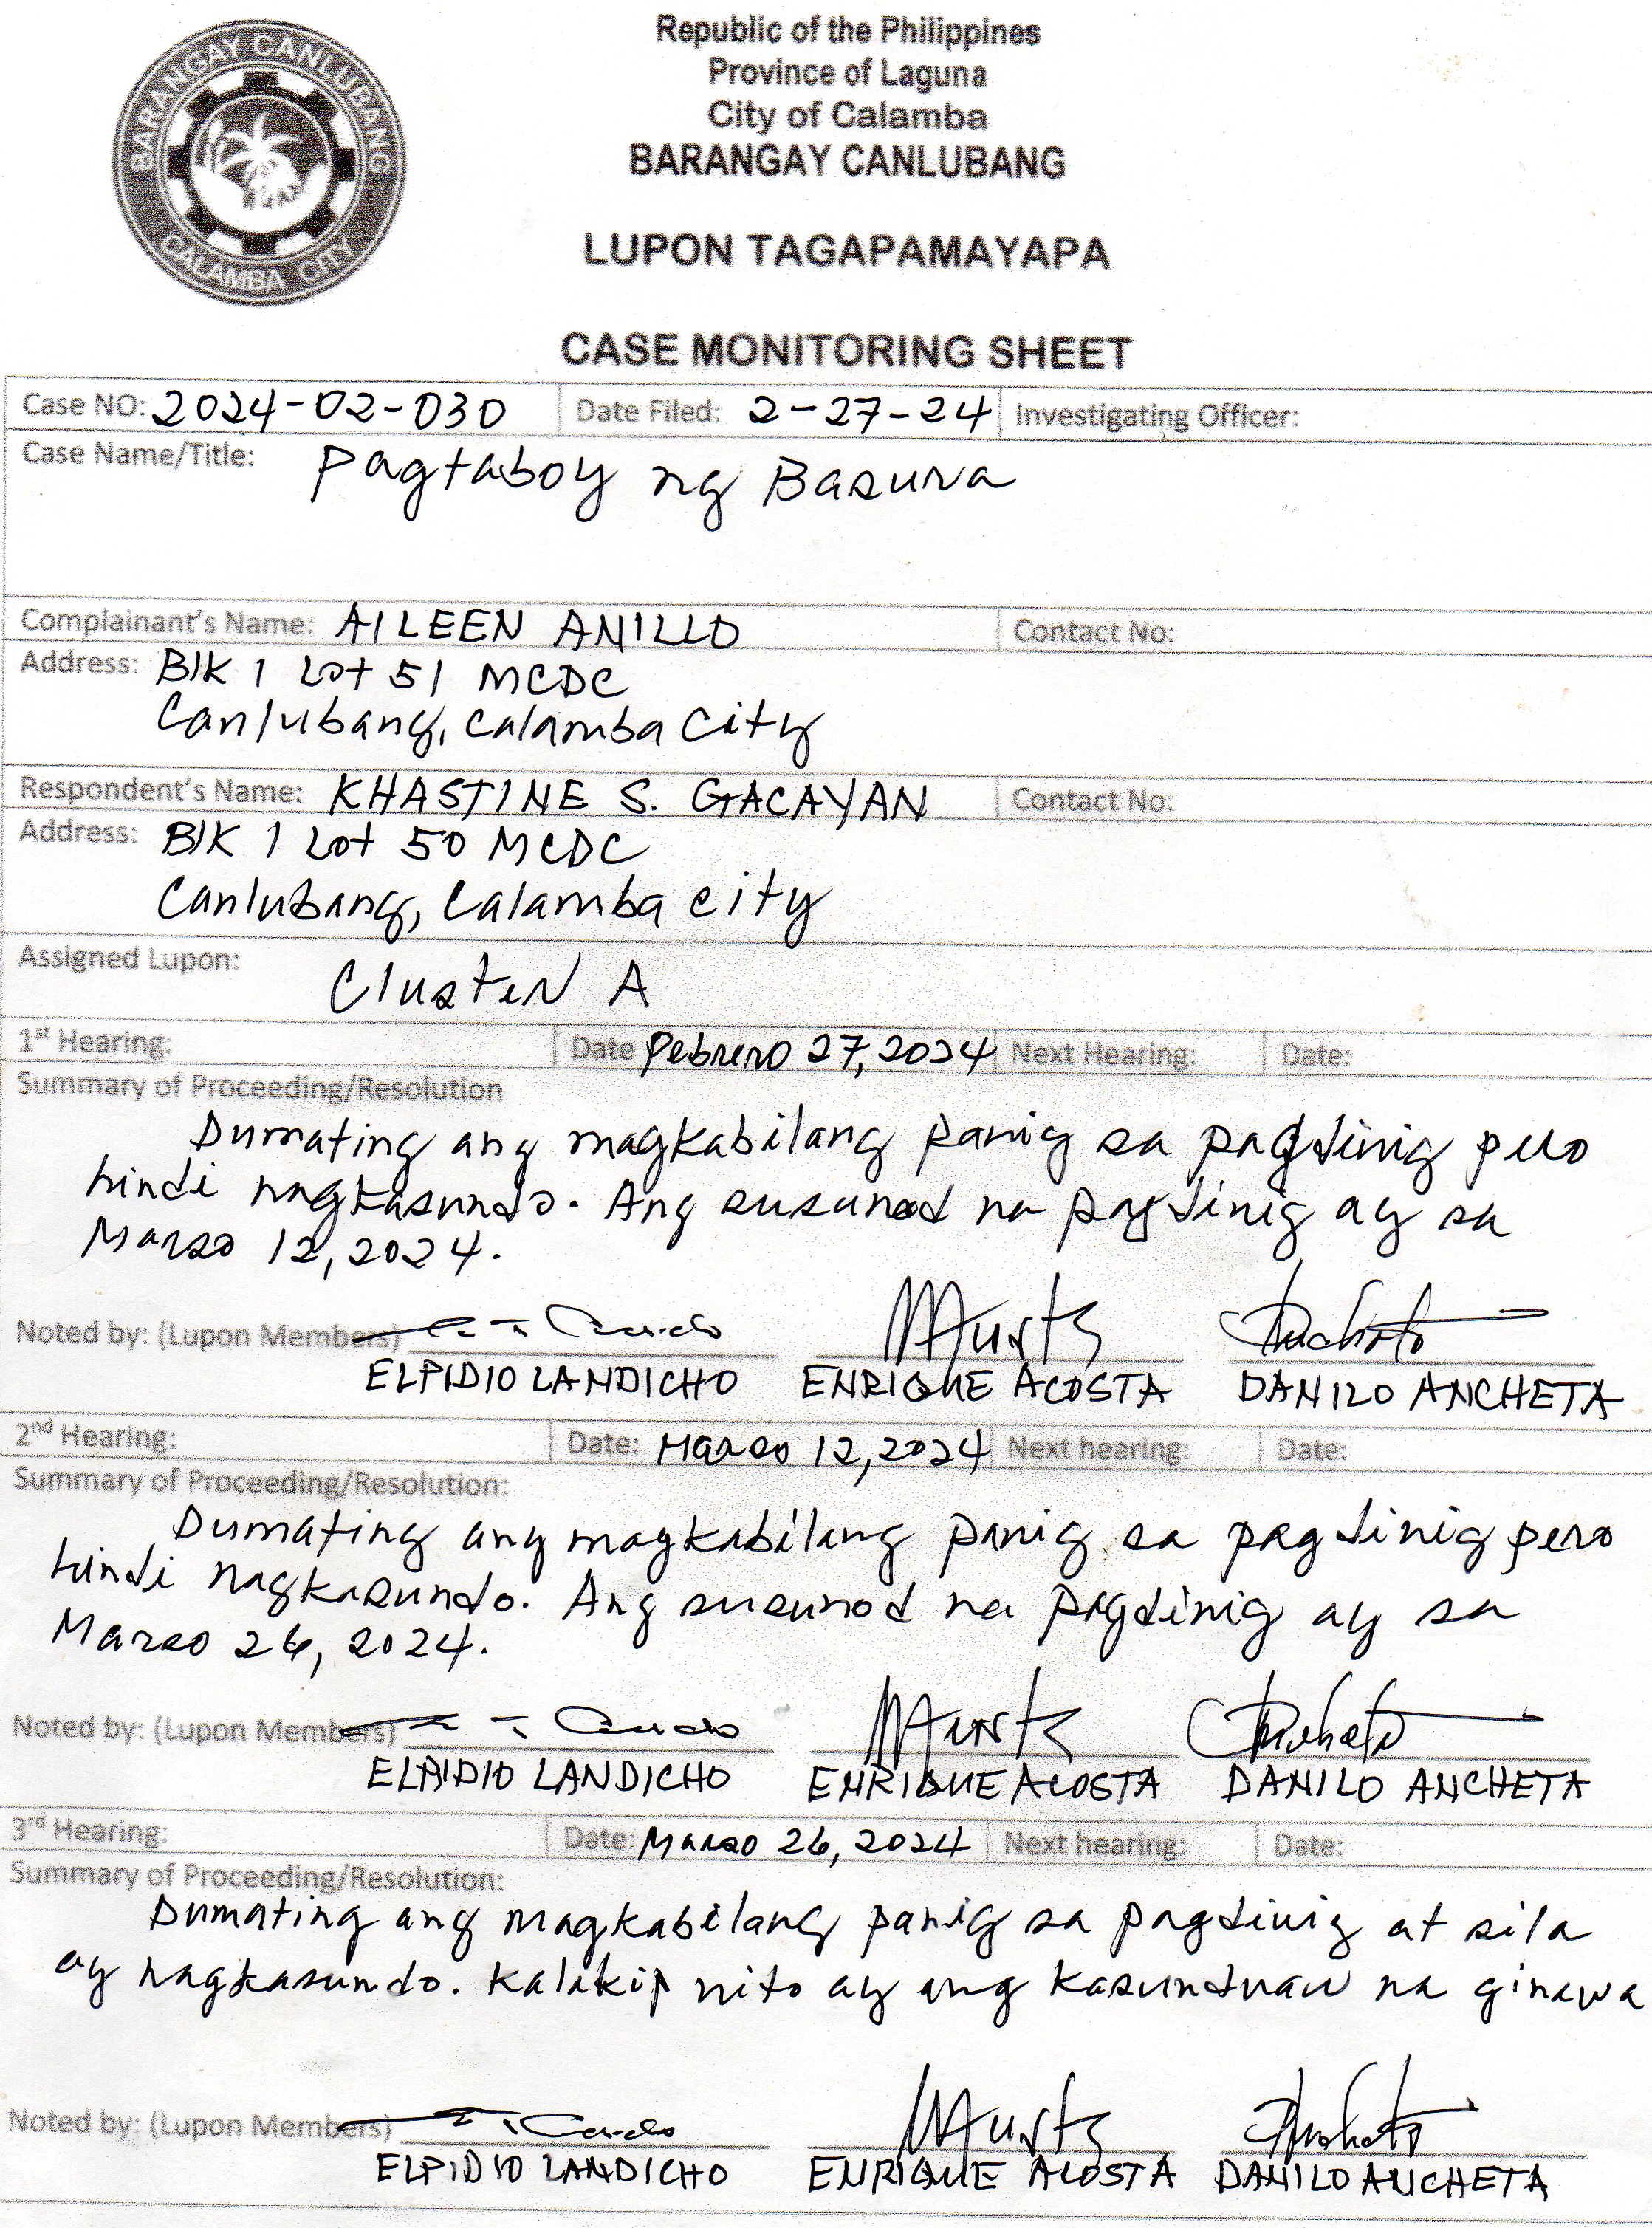 BARANGAY CANLUBANG
CALAMBA CITY
Republic of the Philippines
Province of Laguna
City of Calamba
BARANGAY CANLUBANG
LUPON TAGAPAMAYAPA
CASE MONITORING SHEET
Case NO: 2024-02-030 Date Filed: 2-27-24 Investigating Officer:
Case Name/Title: Pagtaboy ng Basura
Complainant's Name: AILEEN ANILLO Contact No:
Address: Blk 1 Lot 51 MCDC
Canlubang, Calamba City
Respondent's Name: KHASTINE S. GACAYAN Contact No:
Address: Blk 1 Lot 50 MCDC
Canlubang, Calamba City
Assigned Lupon: Cluster A
1st Hearing: Date Pebrero 27, 2024 Next Hearing: Date:
Summary of Proceeding/Resolution
Dumating ang magkabilang panig sa pagdinig pero
hindi nagkasundo. Ang susunod na pagdinig ay sa
Marso 12, 2024.
Noted by: (Lupon Members)
ELPIDIO LANDICHO ENRIQUE ACOSTA DANILO ANCHETA
2nd Hearing: Date: Marso 12, 2024 Next hearing: Date:
Summary of Proceeding/Resolution:
Dumating ang magkabilang panig sa pagdinig pero
hindi nagkasundo. Ang susunod na pagdinig ay sa
Marso 26, 2024.
Noted by: (Lupon Members)
ELPIDIO LANDICHO ENRIQUE ACOSTA DANILO ANCHETA
3rd Hearing: Date: Marso 26, 2024 Next hearing: Date:
Summary of Proceeding/Resolution:
Dumating ang magkabilang panig sa pagdinig at sila
ay nagkasundo. Kalakip nito ay ang kasunduan na ginawa
Noted by: (Lupon Members)
ELPIDIO LANDICHO ENRIQUE ACOSTA DANILO ANCHETA